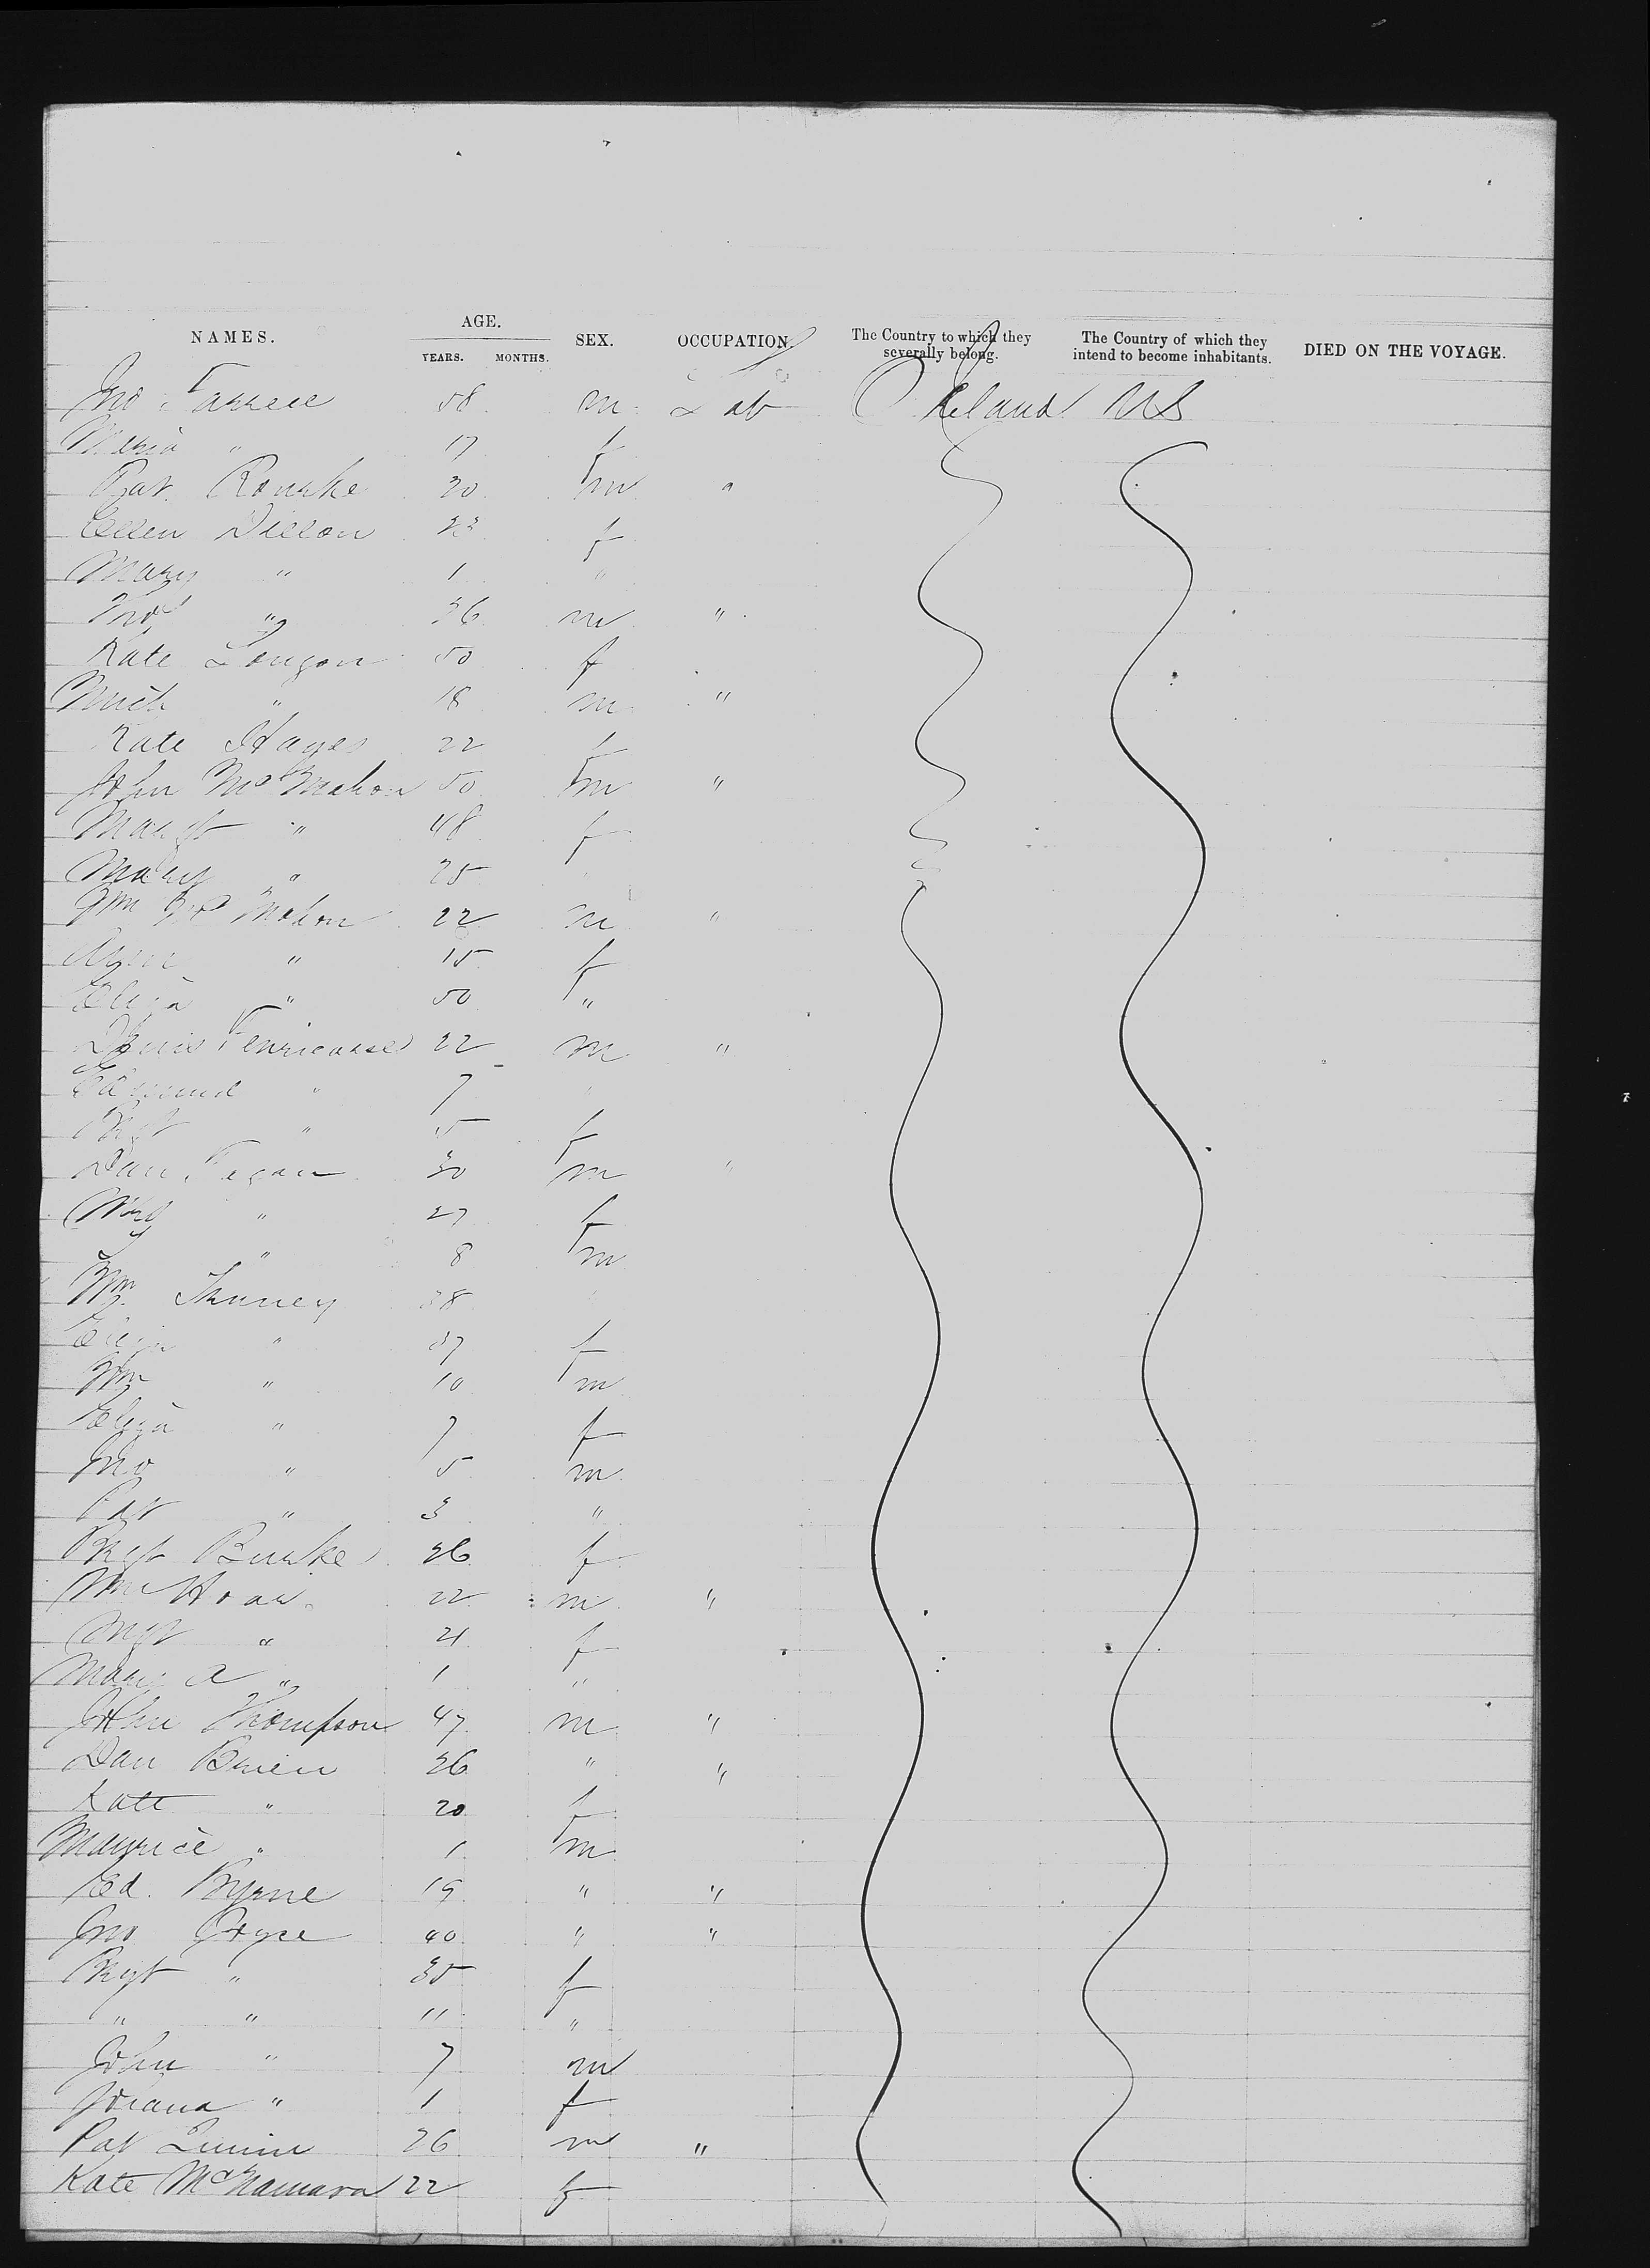 NAMES. AGE. SEX. OCCUPATION. The Country to which they severally belong. The Country of which they intend to become inhabitants. DIED ON THE VOYAGE.
YEARS. MONTHS.
Jno Farrell 58 m Lab Ireland US
Maria " 17 f
Pat Rourke 30 m "
Ellen Dillon f
Mary " 1 "
" 36 m "
Kate 50 f
Mich " 18 m "
Kate Hayes 22 f
John McMahon 50 m "
Margt " 48 f
Mary " 25
Wm McMahon 22 m "
Ann " 15 f
Eliza " 50 "
22 m "
Edmund " 7
" 5 f
Dan Fegan 30 m "
Mary " 27 f
" 8 m
Wm 38
Eliza " 37 f
Wm " 10 m
Eliza " 7 f
Jno " 5 m
Pat " 3 "
Brgt Burke 26 f
Wm 22 m "
" 21 f
Mary A " 1 "
John Thompson 47 m "
Dan Brien 26 " "
Kate " 20 f
Maurice " 1 m
Ed. Byrne 19 " "
Jno Joyce 40 " "
Brgt " 35 f
" " 11 "
John " 7 m
" 1 f
Pat 26 m "
Kate McNamara 22 f